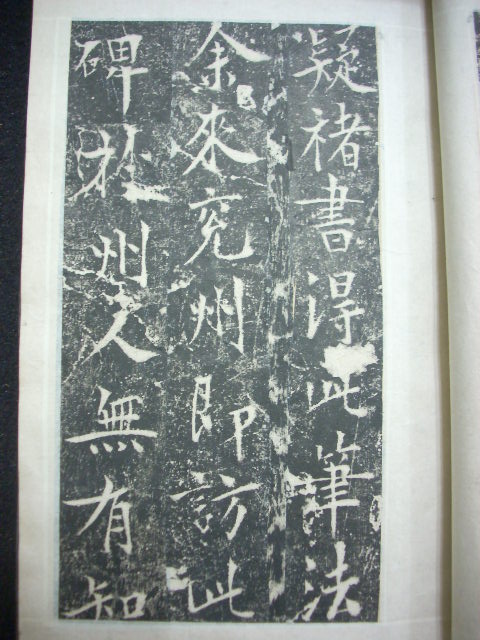 疑褚書得此筆法
余來兗州即訪此
碑於州人無有知